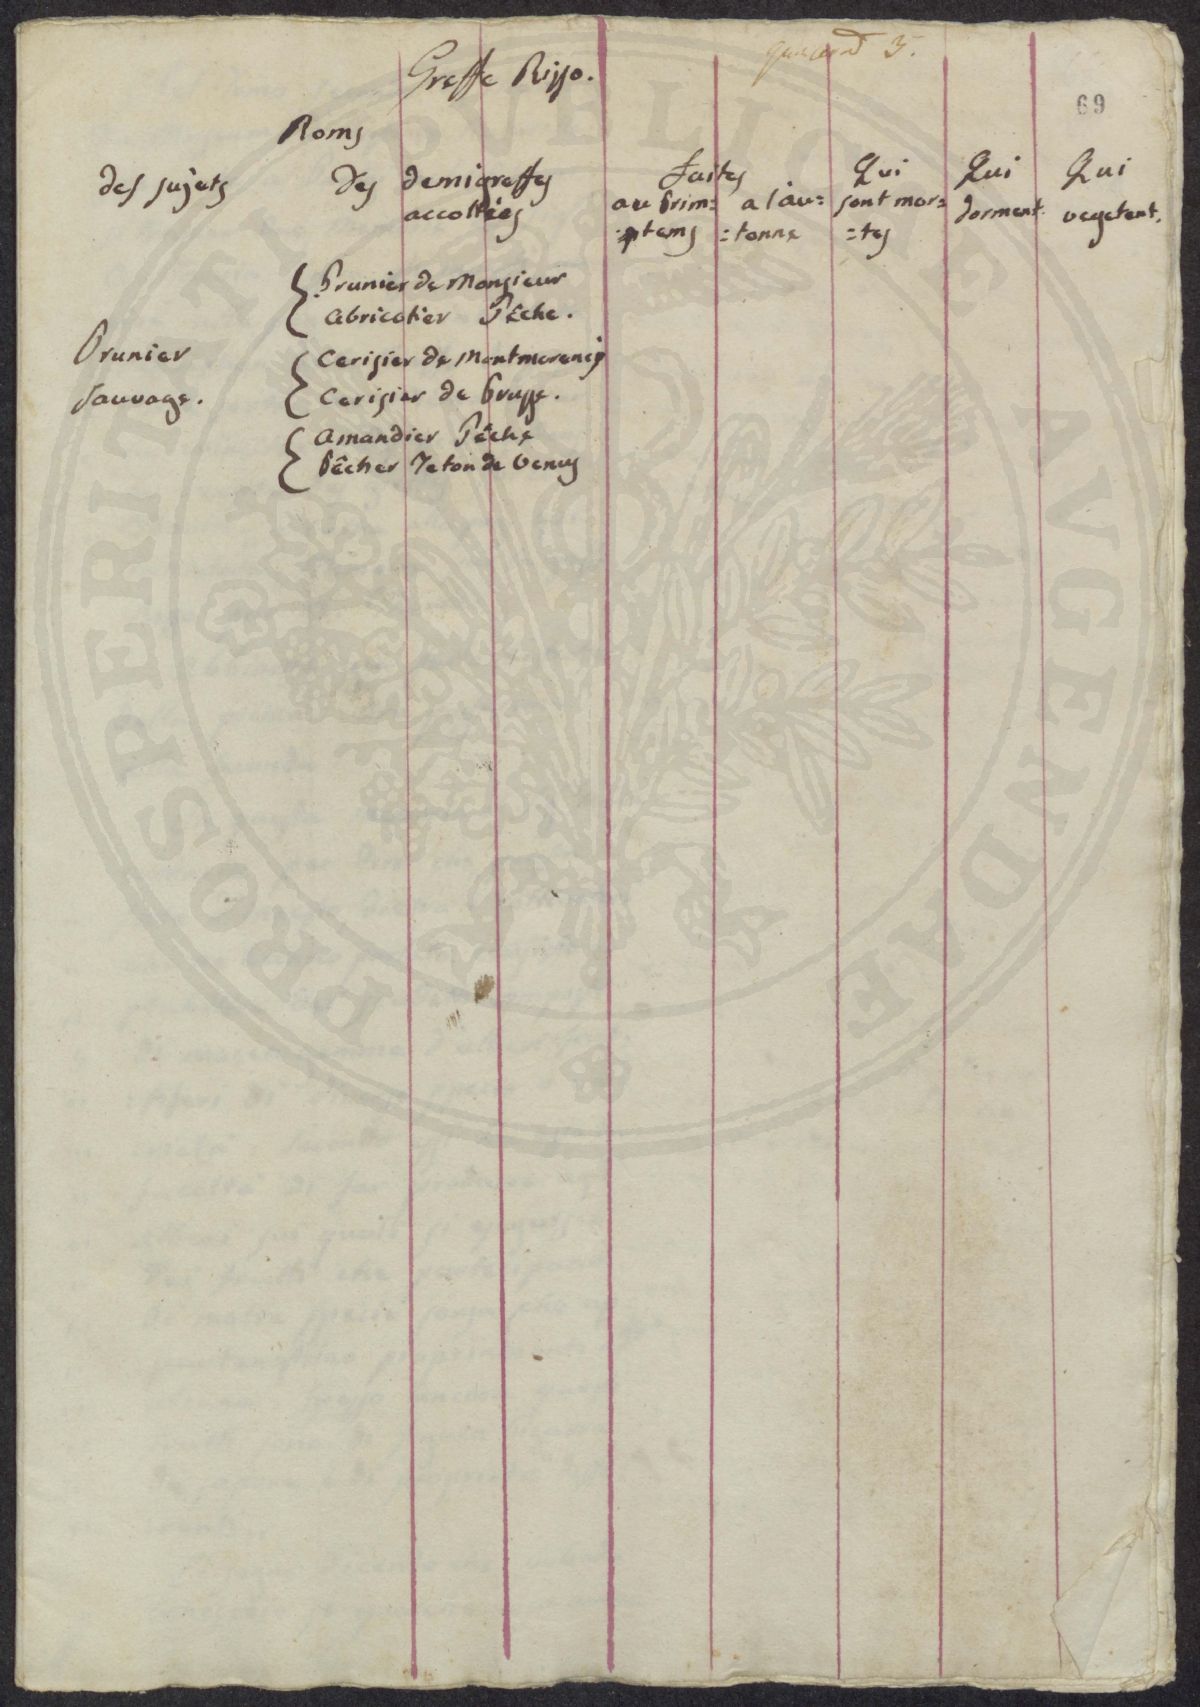 Greffe Risso.
3.
69
Noms
des sujets
des demigreffes
accollées
faites
au prim=
=tems
a l'au=
=tonne
Qui
sont mor=
=tes
Qui
dorment
Qui
vegetent.
Prunier de Monsieur
Abricotier Pêche.
Prunier
sauvage.
Cerisier de Montmorency
Cerisier de Prusse.
Amandier Pêche
Pêcher Teton de Venus
PROSPERITATI PVBLICAE AVGENDAE